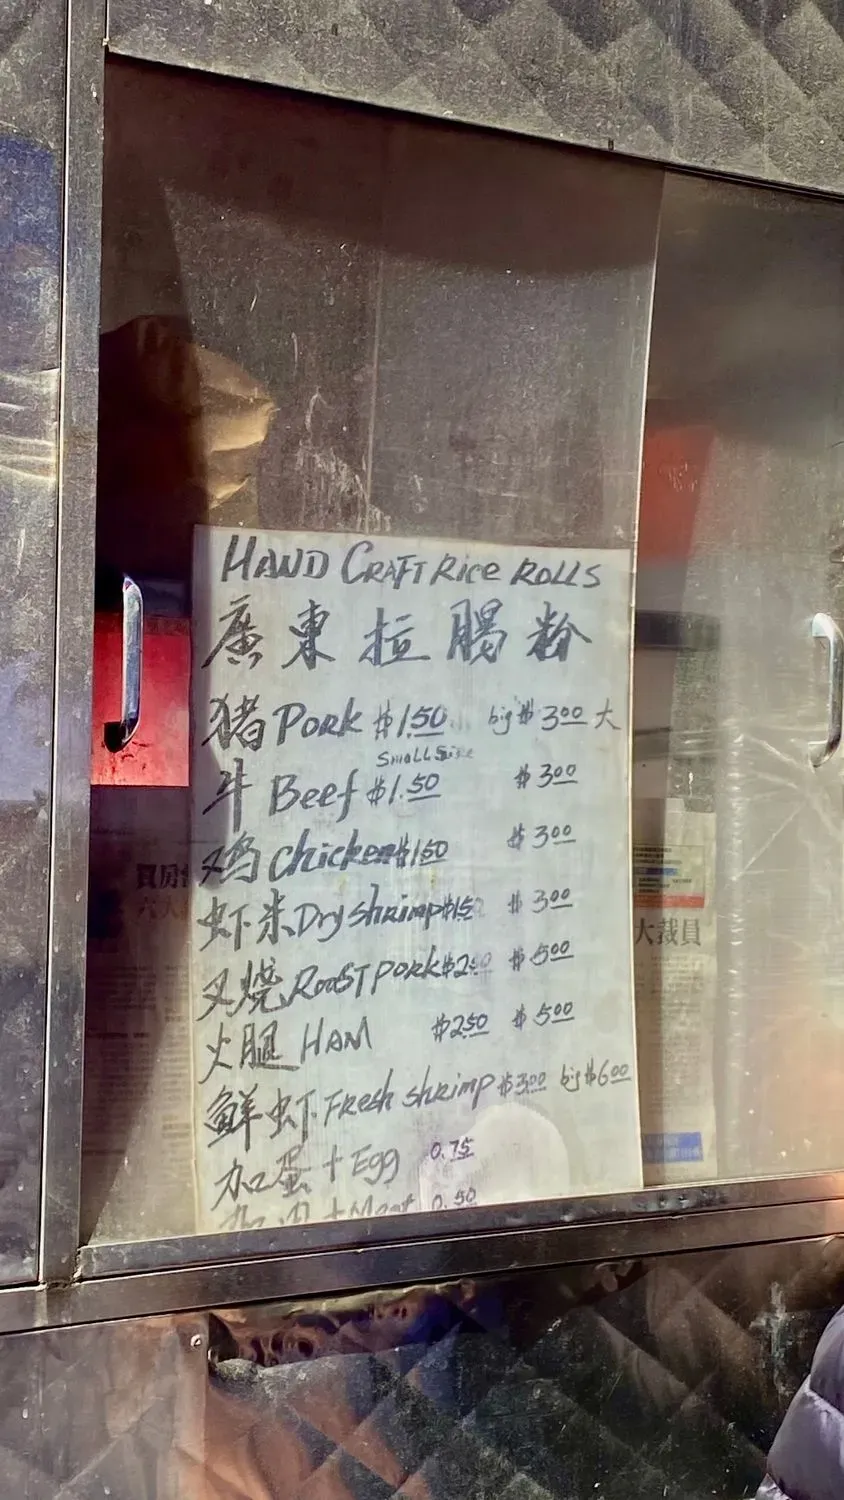 HAND CRAFT Rice ROLLS
廣東拉腸粉
猪 Pork $1.50 big $3.00 大
Small Size
牛 Beef $1.50 $3.00
鸡 Chicken $1.50 $3.00
虾米 Dry shrimp $1.5 $3.00
叉烧 Roast Pork $2.50 $5.00
火腿 HAM $2.50 $5.00
鲜虾 Fresh shrimp $3.00 big $6.00
加蛋 + Egg 0.75
加肉 + Meat 0.50
買房
六大
大裁員